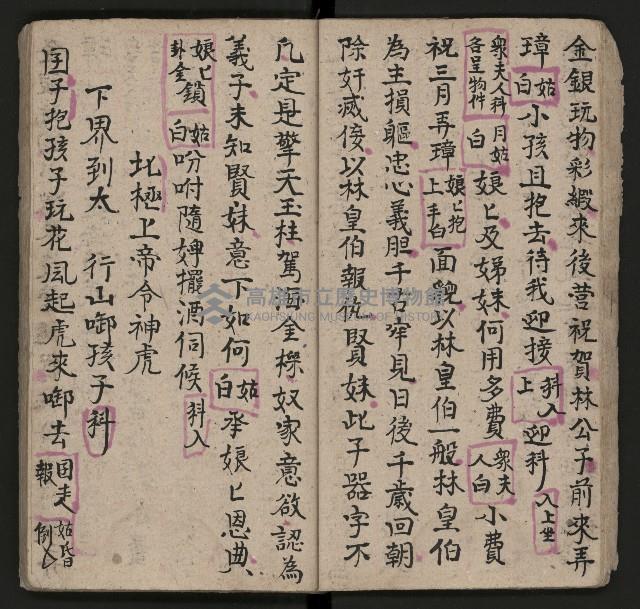 金銀玩物彩緞來後营祝賀林公子前來弄
璋姑白小孩且抱去待我迎接科入上迎科入上坐
衆夫人科各呈物件月姑白娘匕及娣妹何用多費衆夫人白小費
祝三月弄璋娘匕抱上手白面貌以林皇伯一般林皇伯
為主損軀忠心義胆千古罕見日後千歲回朝
除奸滅俊以林皇伯報仇賢妹此子器字不
凡定是擎天玉柱駕
金樑奴家意欲認為
義子未知賢妹意下如何姑白承娘匕恩典
娘匕卦金鎖姑白吩咐隨婢擺酒伺候科入
北極上帝令神虎
下界到太 行山啣孩子科
国子抱孩子玩花風起虎來啣去国走報姑昏倒
高雄市立歷史博物館
KAOHSIUNG MUSEUM OF HISTORY